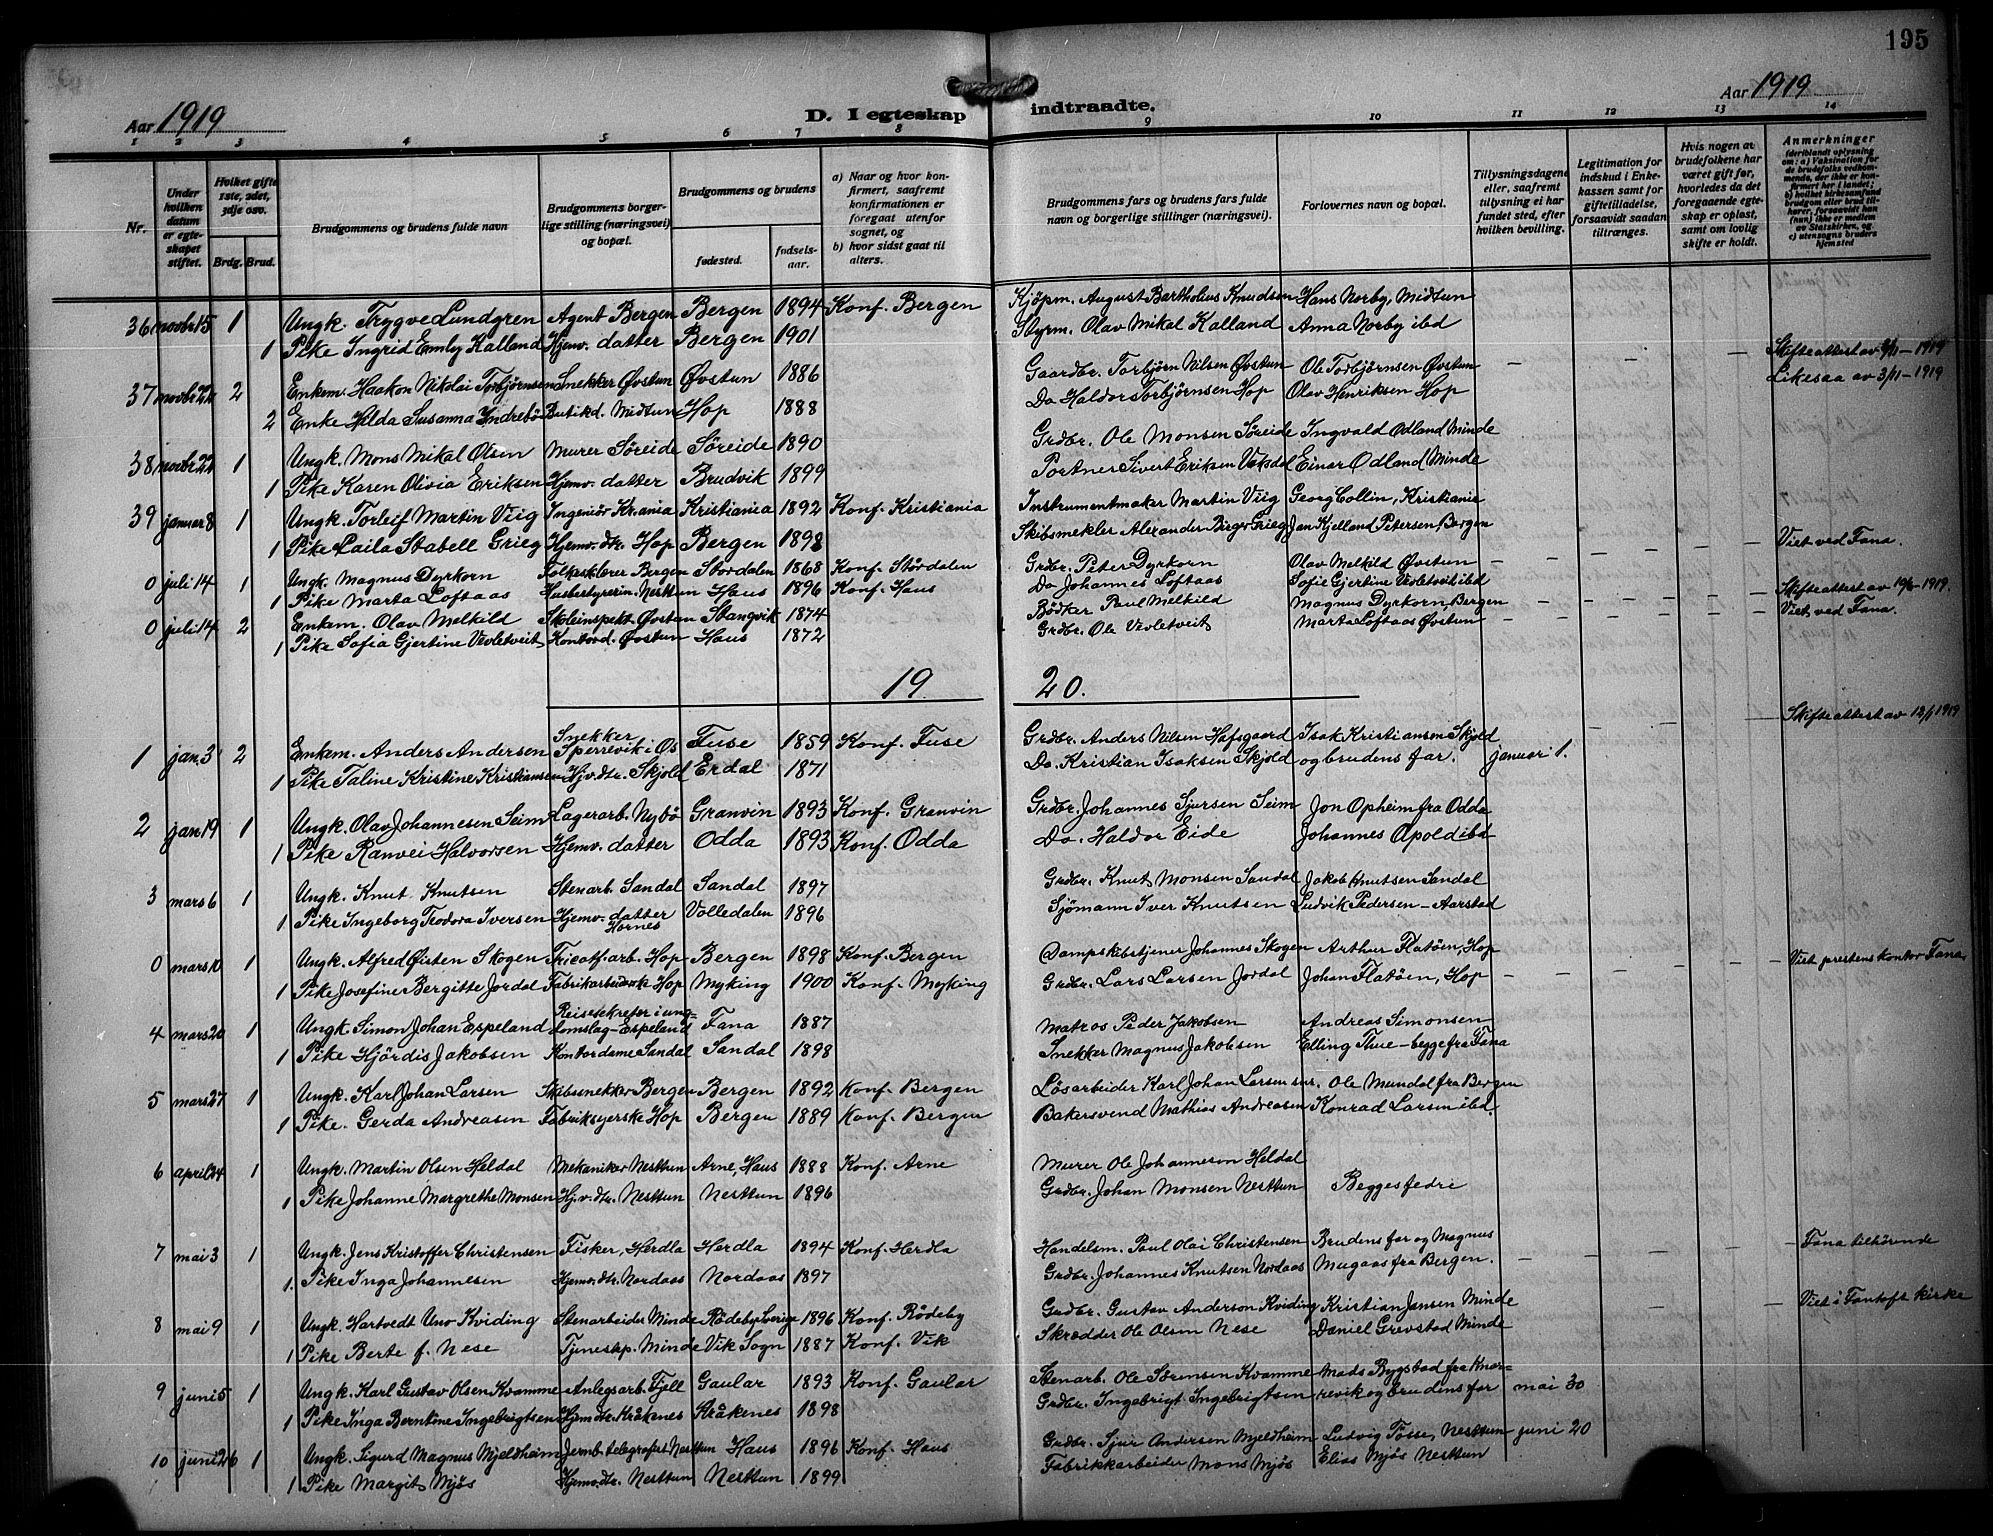 195
Aar 1919
D. I egteskap indtraadte.
Aar 1919
1 2 3 4 5 6 7 8 9 10 11 12 13 14
Nr.
Under hvilken datum er egteskapet stiftet.
Hvilket gifte 1ste, 2det, 3dje osv.
Brdg. Brud.
Brudgommens og brudens fulde navn
Brudgommens borgerlige stilling (næringsvei) og bopæl.
Brudgommens og brudens
fødested.
fødselsaar.
a) Naar og hvor konfirmert, saafremt konfirmationen er foregaat utenfor sognet, og
b) hvor sidst gaat til alters.
Brudgommens fars og brudens fars fulde navn og borgerlige stillinger (næringsvei).
Forlovernes navn og bopæl.
Tillysningsdagene eller, saafremt tillysning ei har fundet sted, efter hvilken bevilling.
Legitimation for indskud i Enkekassen samt for giftetilladelse, forsaavidt saadan tiltrænges.
Hvis nogen av brudefolkene har været gift før, hvorledes da det foregaaende egteskap er opløst, samt om lovlig skifte er holdt.
Anmerkninger (deriblandt oplysning om: a) Vaksination for de brudefolks vedkommende, der ikke er konfirmert her i landet; b) hvilket kirkesamfund brudgom eller brud tilhører, forsaavidt han (hun) ikke er medlem av Statskirken, og c) utensogns bruders hjemsted
36 novbr. 15 1 Ungk. Trygve Lundgren Agent Bergen Bergen 1894 Konf. Bergen Kjøpm. August Bartholius Knudsen Hans Norby, Midtun
1 Pike Ingrid Emly Kalland Hjemv. datter Bergen 1901 Styrm. Olav Mikal Kalland Anna Norby ibd
37 novbr. 22 2 Enkem. Haakon Nikolai Torbjørnsen Snekker Øvstun Øvstun 1886 Gaardbr. Torbjørn Nilsen Øvstun Ole Torbjørnsen Øvstun — — — Skifteattest av /11 – 1919
2 Enke Hilda Susanna Yndrebø Butikd. Midtun Hop 1888 Do Haldor Torbjørnsen Hop Olav Henriksen Hop Likesaa av 3/11 – 1919
38 novbr. 22 1 Ungk. Mons Mikal Olsen Murer Søreide Søreide 1890 Grdbr. Ole Monsen Søreide Ingvald Odland Minde
1 Pike Karen Olivia Eriksen Hjemv. datter Brudvik 1899 Portner Sivert Eriksen Vaksdal Einar Odland Minde
39 januar 8 1 Ungk. Torleif Martin Viig Ingeniør Kr.ania Kristiania 1892 Konf. Kristiania Instrumentmaker Martin Viig Georg Collin, Kristiania
1 Pike Laila Stabell Grieg Hjemv. dtr. Hop Bergen 1898 Skibsmekler Alexander Birger Grieg Jan Kjelland Petersen, Bergen
0 juli 14 1 Ungk. Magnus Dyrkorn Folkeskl. Bergen Stordalen 1868 Konf. Stordalen Grdbr. Peter Dyrkorn Olav Melkild Øvstun — — — — Viet ved Fana.
1 Pike Marta Loftaas Husbestyrerin. Nesttun Haus 1896 Konf. Haus Do Johannes Loftaas Sofie Gjertine Vevletveit ibd
0 juli 14 2 Enkem. Olav Melkild Skoleinspekt. Øvstun Stangvik 1874 Bødker Paul Melkild Magnus Dyrkorn, Bergen — — — — Skifteattest av 1919.
1 Pike Sofia Gjertine Vevletveit, Kontord. Øvstun Haus 1872 Grdbr. Ole Vevletveit Marta Loftaas Øvstun — — — — Viet ved Fana.
19 20.
1 jan. 3 2 Enkem. Anders Andersen Snekker Sperrevik i Os Fuse 1859 Konf. Fuse Grdbr. Anders Nilsen Hafsgaard Isak Kristiansen Skjold — Skifteattest av 12/1 1919
1 Pike Taline Kristine Kristiansen Hjv. dtr. Skjold Erdal 1871 Do. Kristian Isaksen Skjold og brudens far. januar 1.
2 jan. 19 1 Ungk. Olav Johannesen Seim Lagerarb. Nybø Granvin 1893 Konf. Granvin Grdbr. Johannes Sjursen Seim Jon Opheim fra Odda
1 Pike Ranvei Halvorsen Hjemv. datter Odda 1893 Konf. Odda Do. Haldor Eide Johannes Apold ibd
3 mars 6 1 Ungk. Knut Knutsen Stenarb. Sandal Sandal 1897 Grdbr. Knut Monsen Sandal Jakob Knutsen Sandal
1 Pike Ingeborg Teodora Iversen Hjemv. datter Hornes Volledalen 1896 Sjømann Iver Knutsen Ludvik Pedersen – Aarstad
0 mars 10 1 Ungk. Alfred Øisten Skogen Tricotf.arb. Hop Bergen 1898 Konf. Bergen Dampskibstjener Johannes Skogen Arthur Flatøen, Hop — — Viet prestens kontor Fana.
1 Pike Josefine Bergitte Jordal Fabrikarbeiderske Hop Myking 1900 Konf. Myking Grdbr. Lars Larsen Jordal Johan Flatøen, Hop — — — —
4 mars 20 1 Ungk. Simon Johan Espeland Reisesekretær i ungdomslag – Espeland Fana 1887 Matros Peder Jakobsen Andreas Simonsen
1 Pike Hjördis Jakobsen Kontordame Sandal Sandal 1898 Snekker Magnus Jakobsen Elling Thue – begge fra Fana
5 mars 27 1 Ungk. Karl Johan Larsen Skibssnekker Bergen Bergen 1892 Konf. Bergen Løsarbeider Karl Johan Larsen snr. Ole Mundal fra Bergen
1 Pike. Gerda Andreasen Fabriksyerske Hop Bergen 1889 Konf. Bergen Bakersvend Mathias Andreasen Konrad Larsen ibd.
6 april 24 1 Ungk. Martin Olsen Heldal Mekaniker Nesttun Arne, Haus 1888 Konf. Arne Murer Ole Johannesen Heldal
1 Pike Johanne Margrethe Monsen Hj.v. dtr. Nesttun Nesttun 1896 Grdbr. Johan Monsen Nesttun Begges fedre
7 mai 3 1 Ungk. Jens Kristoffer Christensen Fisker, Herdla Herdla 1894 Konf. Herdla Handelsm. Paul Olai Christensen Brudens far og Magnus — Fana tilhørende
1. Pike Inga Johannesen Hjemv. dtr. Nordaas Nordaas 1897 Grdbr. Johannes Knutsen Nordaas Mugaas fra Bergen. — — — —
8 mai 9 1 Ungk. Hartvedt Uno Kviding Stenarbeider Minde Rødeby Sverige 1896 Konf. Rødeby Grdbr. Gustav Anderson Kviding Kristian Jansen Minde — — Viet i Fantoft kirke
1 Pike Berte f. Nese Tjenestep. Minde Vik Sogn 1887 Konf. Vik Skrædder Ole Olsen Nese Daniel Grevstad Minde
9 juni 5 1 Ungk. Karl Gustav Olsen Kvamme Anlegsarb. Fjell Gaular 1893 Konf. Gaular Stenarb. Ole Sørensen Kvamme Mads Bygstad fra Knar-
1 Pike Inga Berntine Ingebrigtsen Hjem.dtr. Kråkenes Kråkenes 1898 Grdbr. Ingebrigt Ingebrigtsen revik og brudens far mai 30
10 juni 26 1 Ungk. Sigurd Magnus Mjeldheim Jernb. telegrafist Nesttun Haus 1896 Konf. Haus Grdbr. Sjur Andersen Mjeldheim Ludvig Tosse, Nesttun juni 20
1 Pike Margit Mjøs Hjemv. dtr. Nesttun Nesttun 1899 Fabrikkarbeider Mons Mjøs Elias Mjøs Nesttun